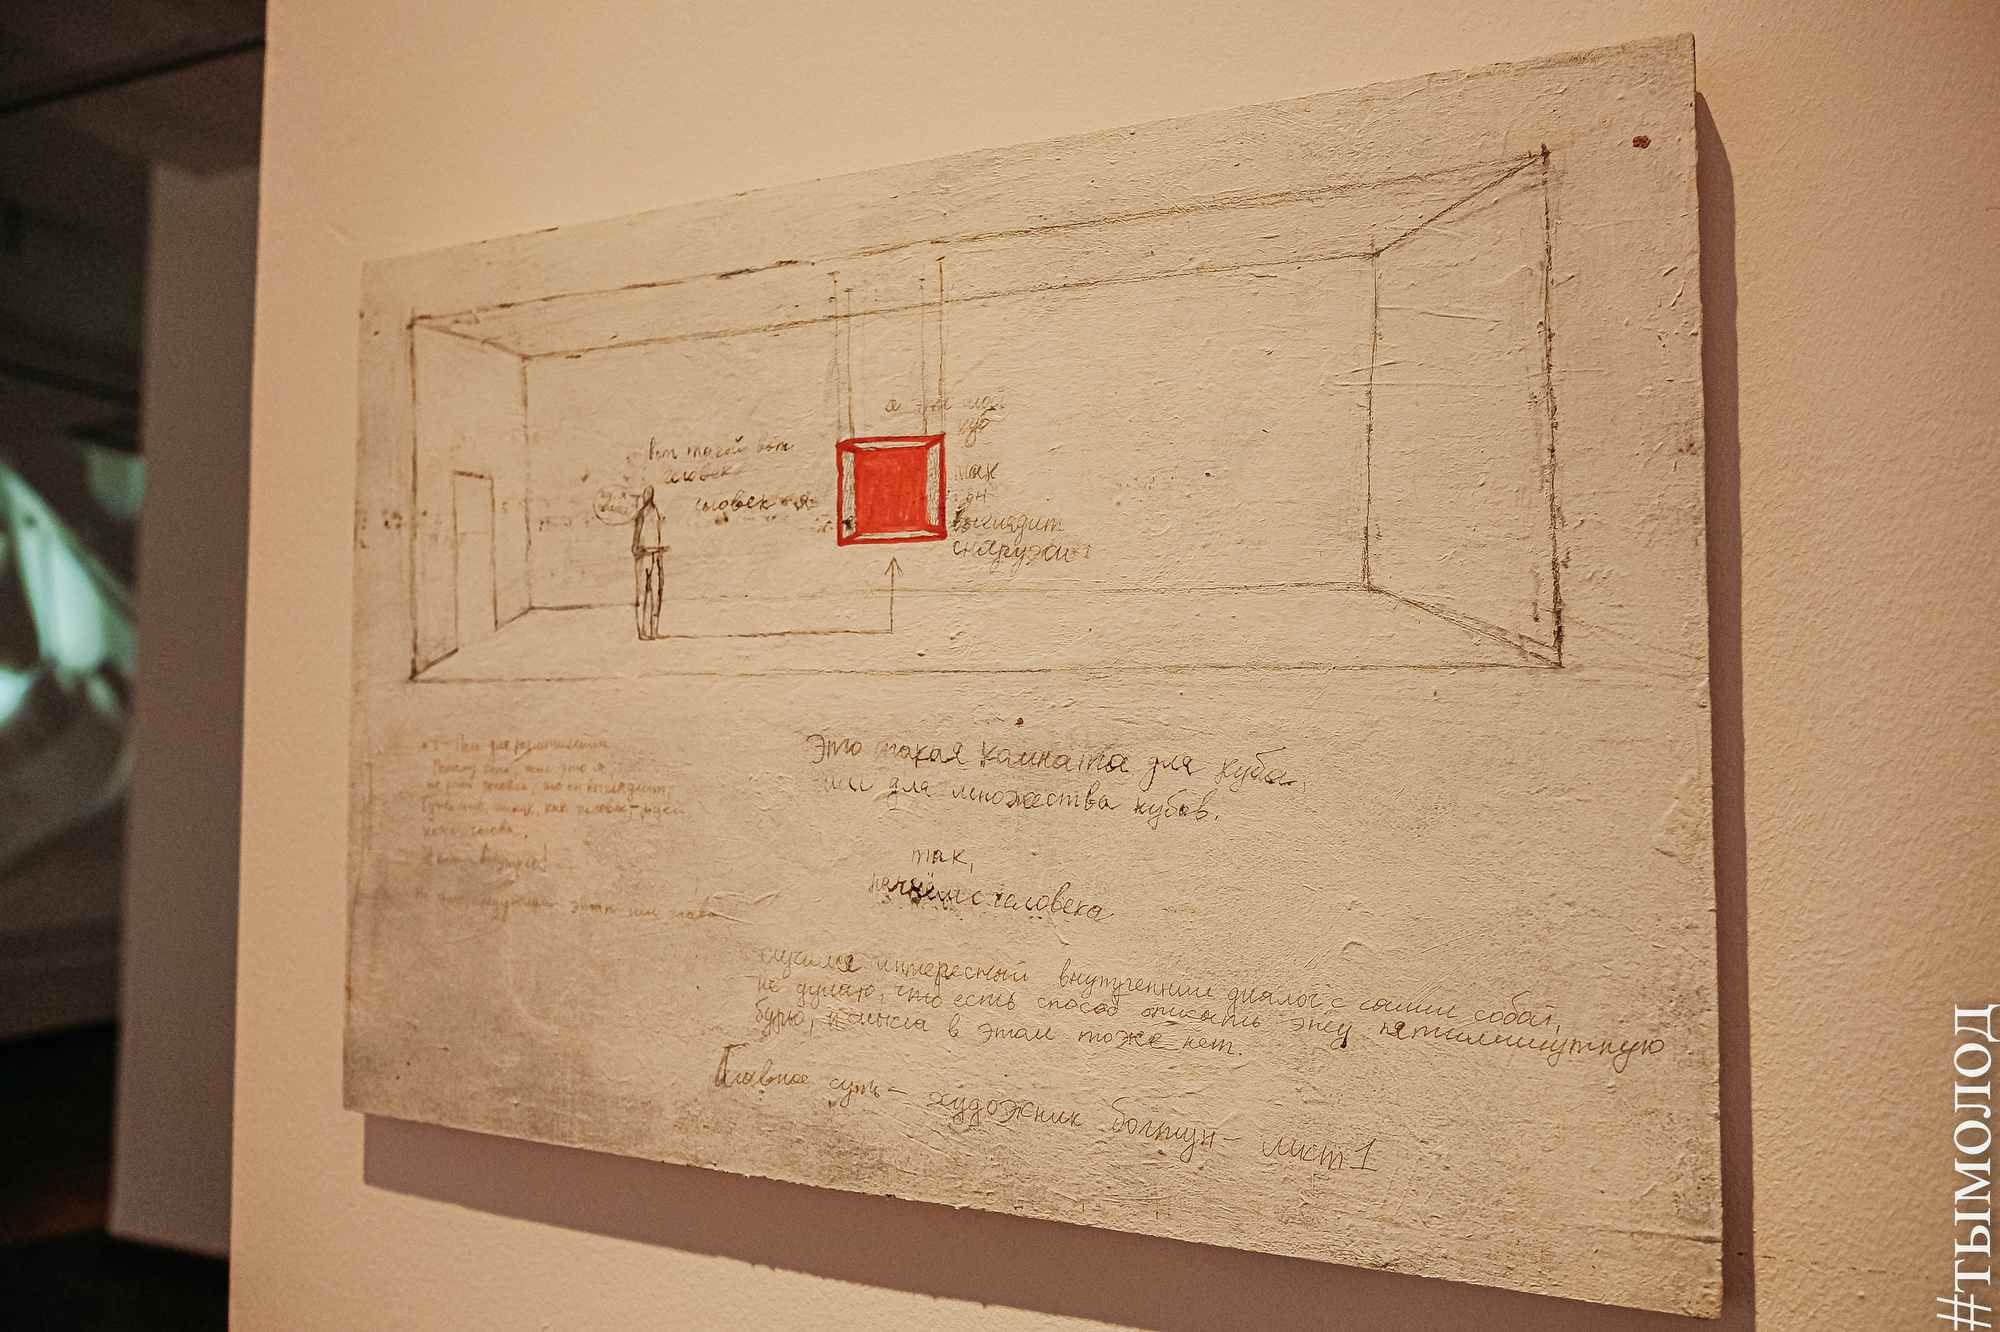 а это мой
куб
вот такой вот
человек
человек - я
так
он
выглядит
снаружи
Это такая комната для куба,
или для множества кубов.
так,
начнём с человека
случился интересный внутренний диалог с самим собой,
не думаю, что есть способ описать эту пятиминутную
бурю, и смысла в этом тоже нет.
Главное суть - художник болтун - лист 1
не человек, выглядит,
как человек,
#ТЫМОЛОД